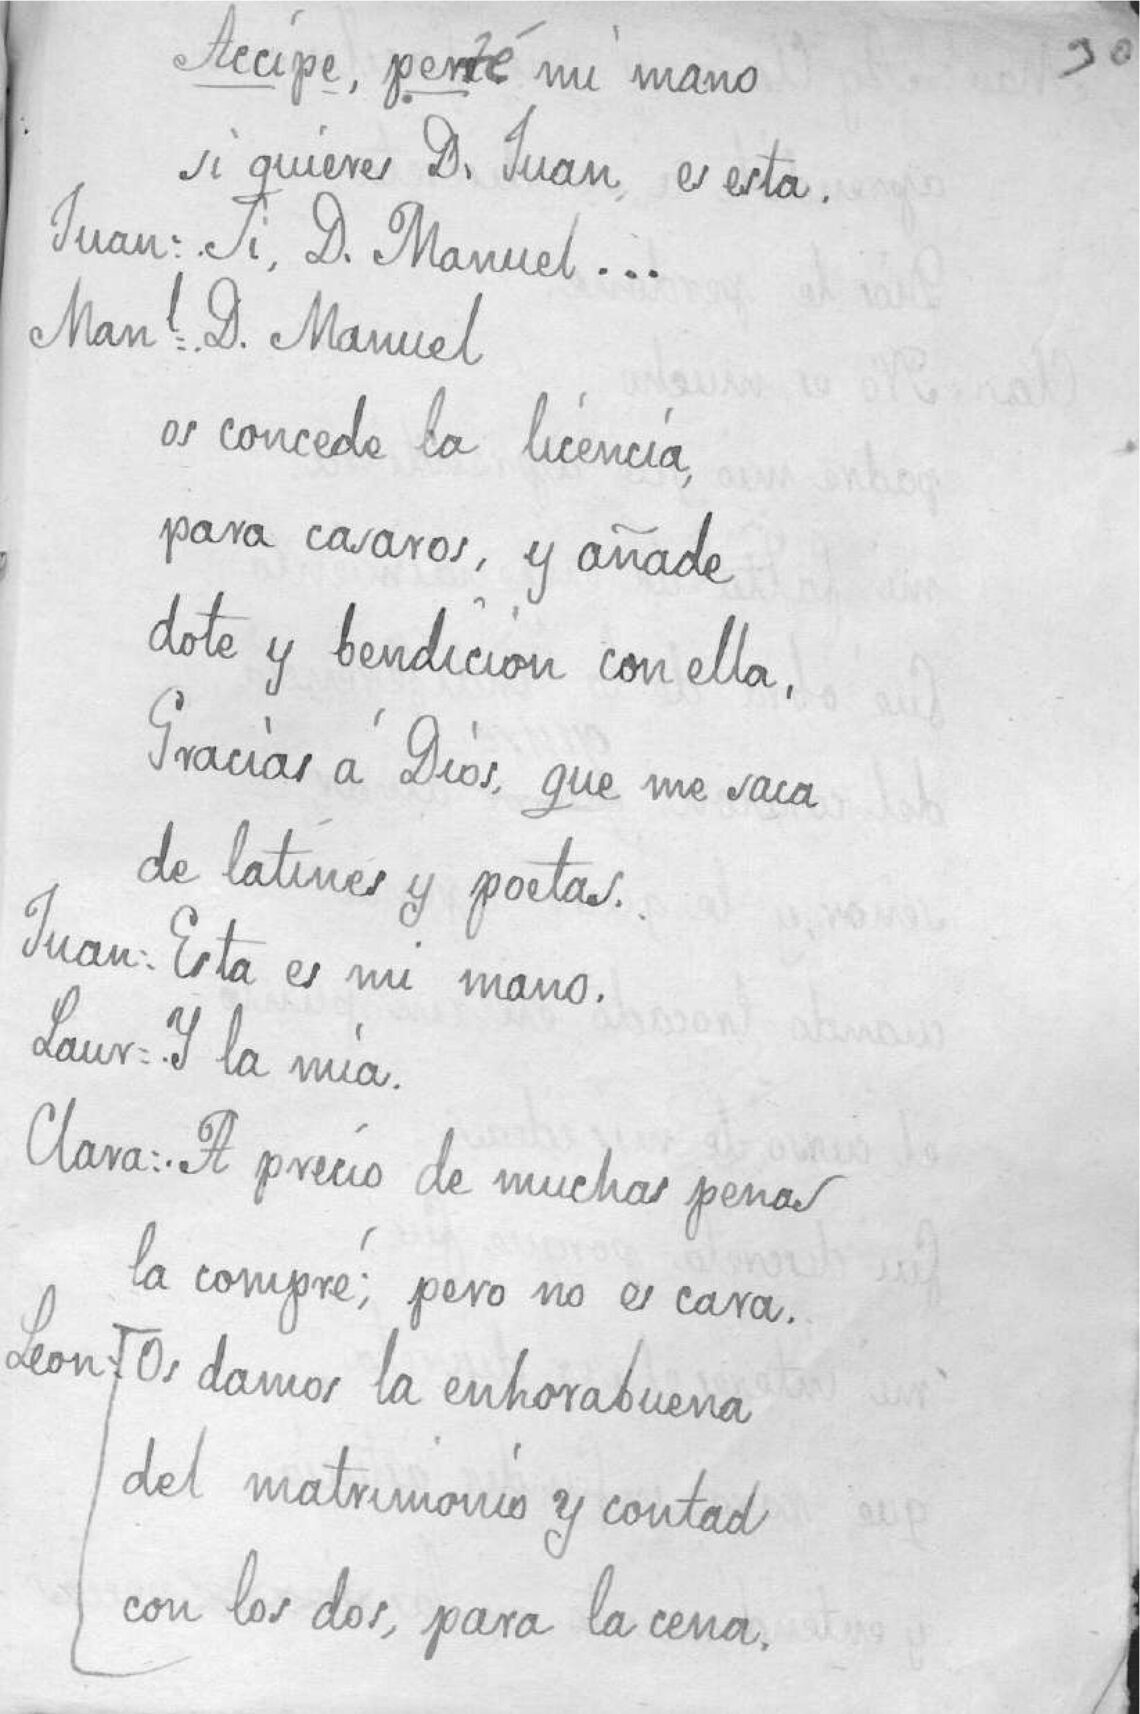 90
Accipe, perté mi mano
si quieres D. Juan, es esta.
Juan: Si, D. Manuel...
Manl: D. Manuel
os concede la licencia,
para casaros, y añade
dote y bendición con ella.
Gracias á Dios, que me saca
de latines y poetas.
Juan: Esta es mi mano.
Laur: Y la mia.
Clara: A precio de muchas penas
la compré; pero no es cara.
Leon: Os damos la enhorabuena
del matrimonio y contad
con los dos, para la cena.